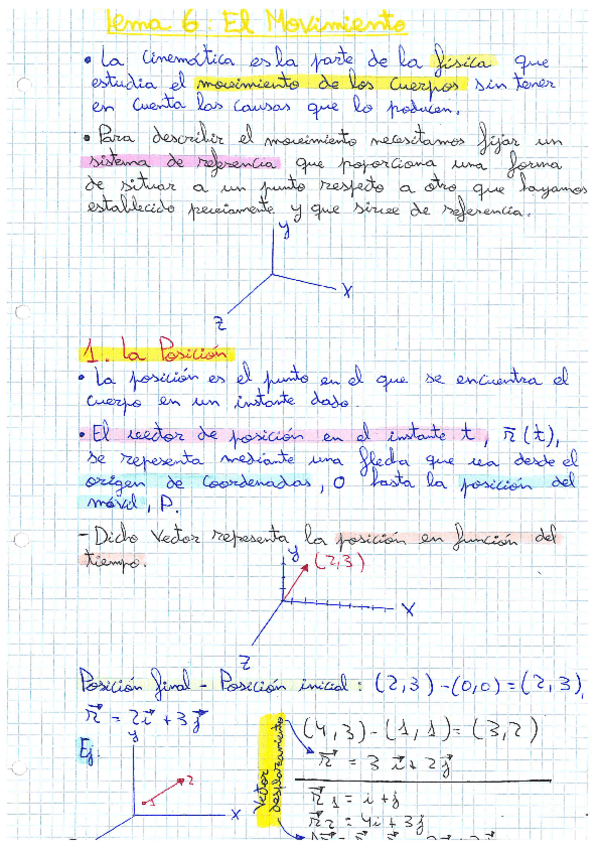 Tema 6: El Movimiento
• La cinemática es la parte de la física que
estudia el movimiento de los cuerpos sin tener
en cuenta las causas que lo producen.
• Para describir el movimiento necesitamos fijar un
sistema de referencia que poporciona una forma
de situar a un punto respecto a otro que hayamos
establecido previamente y que sirve de referencia.
y
x
z
1. La Posición
• La posición es el punto en el que se encuentra el
cuerpo en un instante dado.
• El vector de posición en el instante t, r⃗(t),
se representa mediante una flecha que va desde el
origen de coordenadas, O hasta la posición del
móvil, P.
- Dicho Vector representa la posición en función del
tiempo.
y
(2,3)
x
z
Posición final - Posición inicial: (2,3)-(0,0)=(2,3)
r⃗ = 2i⃗ + 3j⃗
Ej.
y
1
2
x
Vector desplazamiento
(4,3)-(1,1)=(3,2)
r⃗ = 3i⃗ + 2j⃗
r⃗1 = i+j
r⃗2 = 4i+3j